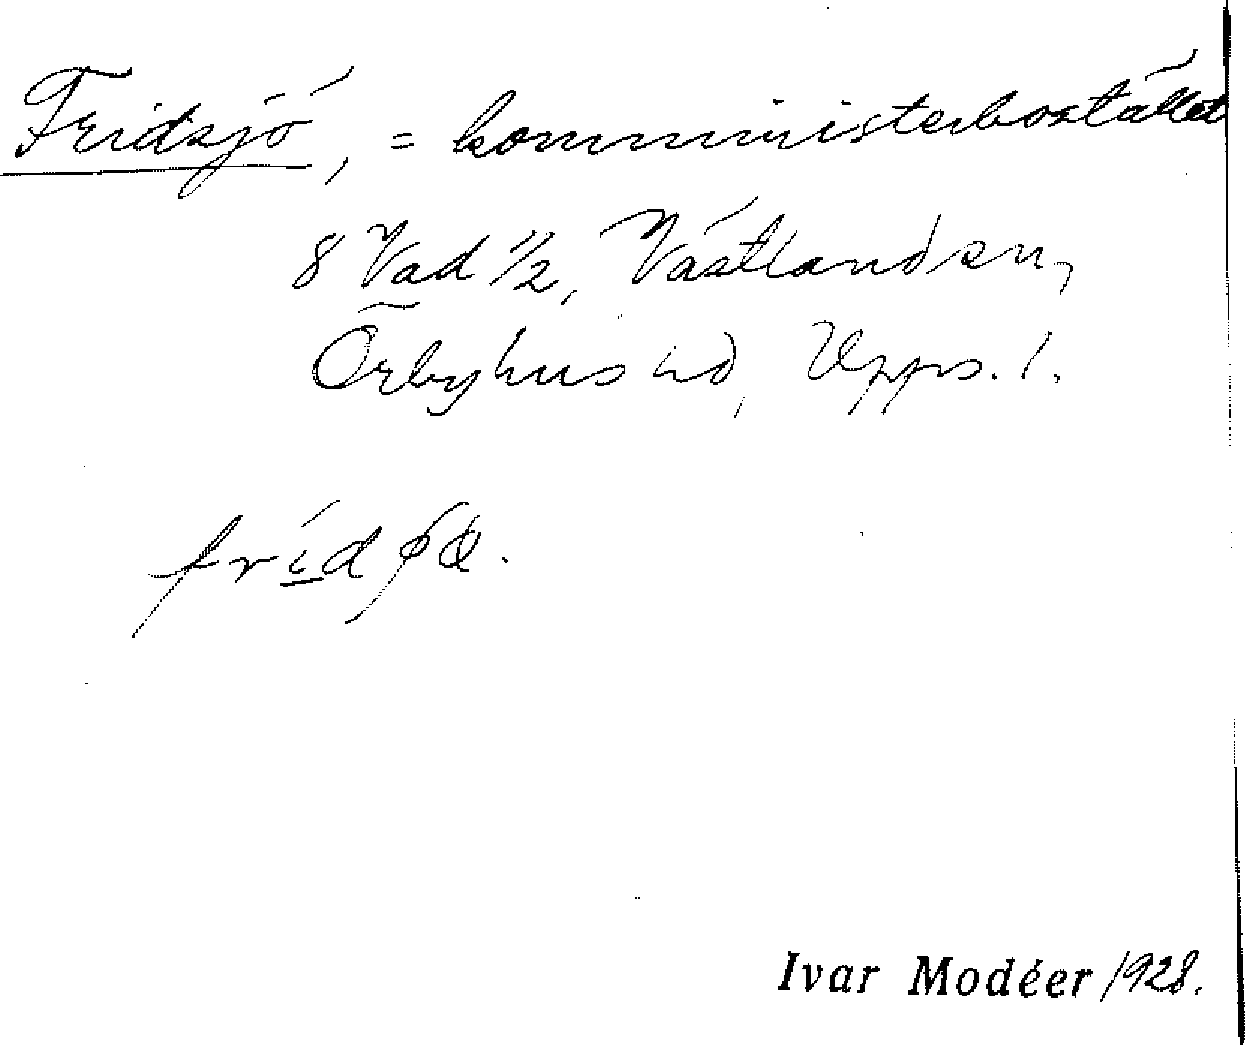 Fridsjö, = kommministerbostället
8 Vad 1/2, Västlands sn,
Örbyhus hd, Upps. l.
Ivar Modéer 1928.